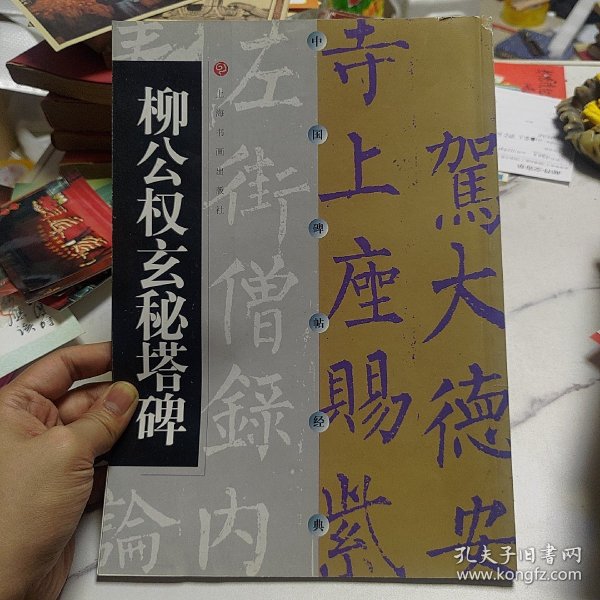 柳公权玄秘塔碑
上海书画出版社
中国碑帖经典
駕大德安
寺上座賜紫
左街僧錄內
論
孔夫子旧书网
www.kongfz.com